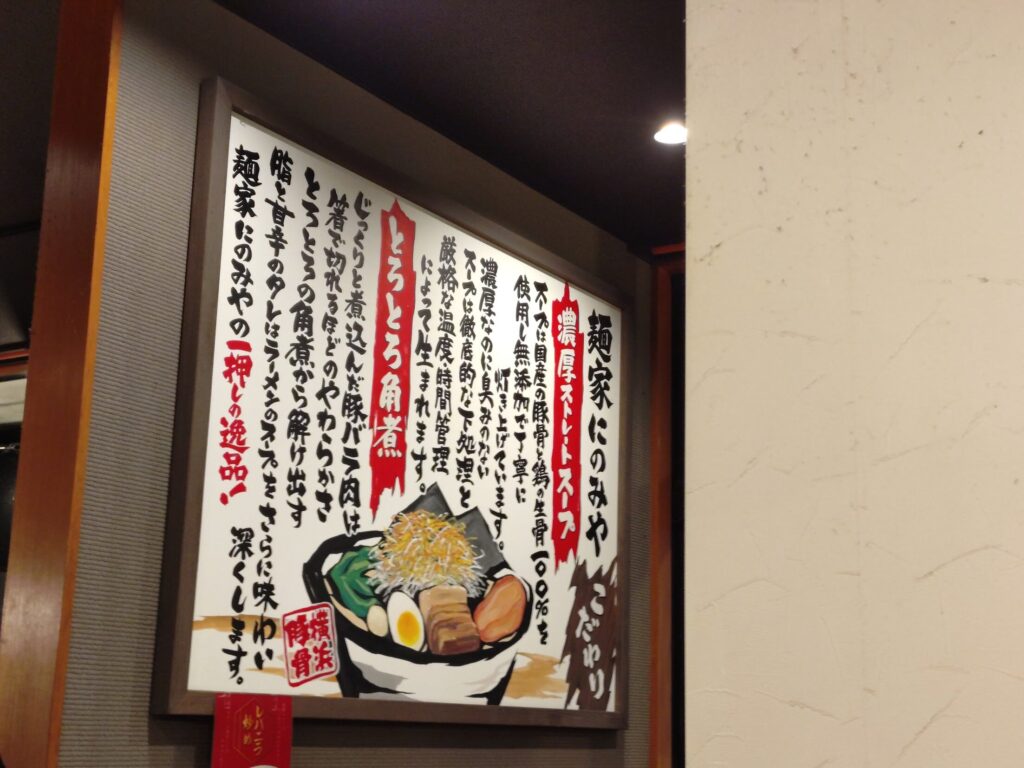 麺家にのみや
こだわり
濃厚ストレートスープ
スープは国産の豚骨と鶏の生骨一〇〇%を
使用し無添加で丁寧に
炊き上げています。
濃厚なのに臭みのない
スープは徹底的な下処理と
厳格な温度・時間管理
によって生まれます。
とろとろ角煮
じっくりと煮込んだ豚バラ肉は
箸で切れるほどのやわらかさ
とろとろの角煮から解け出す
脂と甘辛のタレはラーメンのスープをさらに味わい
深くします。
麺家にのみやの一押しの逸品!
横浜
豚骨